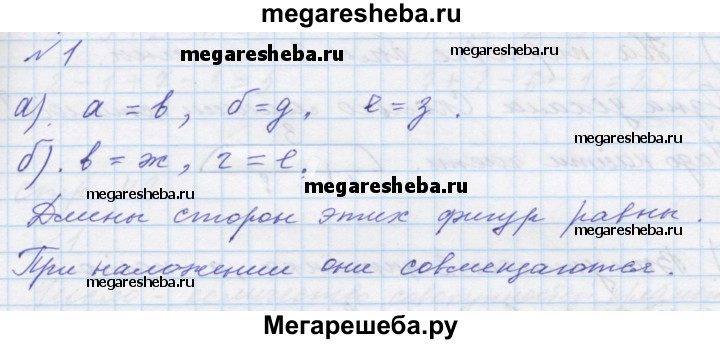 megaresheba.ru
№ 1
megaresheba.ru
а). а = в, б = д. е = з.
megaresheba.ru
б). в = ж, г = е.
megaresheba.ru
megaresheba.ru
Длины сторон этих фигур равны.
megaresheba.ru
При наложении они совмещаются.
megaresheba.ru
megaresheba.ru
Мегарешеба.ру